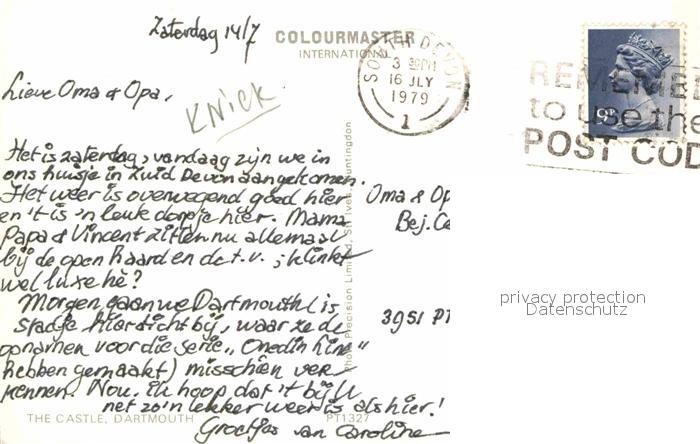 Zaterdag 14/7
COLOURMASTER
INTERNATIONAL
SOUTH DEVON
3 30PM
16 JLY
1979
1
REMEMBE
to use the
POST COD
9P
Lieve Oma & Opa,
KNiCK
Het is zaterdag, vandaag zijn we in
ons huisje in Zuid Devon aangekomen.
Het weer is overwegend goed hier
en 't is 'n leuk dorpje hier. Mama
Papa & Vincent zitten nu allemaal
bij de open haard en de t.v. ; klinkt
wel luxe hè?
Morgen gaan we Dartmouth (is
stadje hier dicht bij, waar ze de
opnamen voor die serie "Onedin Line"
hebben gemaakt) misschien ver-
kennen. Nou, ik hoop dat 't bij U
net zo'n lekker weer is als hier!
Groetjes van Caroline
Oma & Op
Bej. Ce
3951 PT
Photo Precision Limited, St. Ives, Huntingdon
privacy protection
Datenschutz
THE CASTLE, DARTMOUTH
PT1327